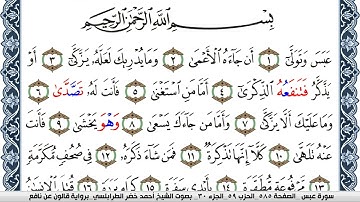 بِسْمِ اللَّهِ الرَّحْمَٰنِ الرَّحِيمِ
عَبَسَ وَتَوَلَّىٰ ١ أَن جَاءَهُ الْأَعْمَىٰ ٢ وَمَا يُدْرِيكَ لَعَلَّهُ يَزَّكَّىٰ ٣ أَوْ
يَذَّكَّرُ فَتَنفَعُهُ الذِّكْرَىٰ ٤ أَمَّا مَنِ اسْتَغْنَىٰ ٥ فَأَنتَ لَهُ تَصَّدَّىٰ ٦
وَمَا عَلَيْكَ أَلَّا يَزَّكَّىٰ ٧ وَأَمَّا مَن جَاءَكَ يَسْعَىٰ ٨ وَهْوَ يَخْشَىٰ ٩ فَأَنتَ
عَنْهُ تَلَهَّىٰ ١٠ كَلَّا إِنَّهَا تَذْكِرَةٌ ١١ فَمَن شَاءَ ذَكَرَهُ ١٢ فِي صُحُفٍ مُّكَرَّمَةٍ
١٣ مَّرْفُوعَةٍ مُّطَهَّرَةٍ ١٤ بِأَيْدِي سَفَرَةٍ ١٥
سورة عبس الصفحة ٥٨٥ الجزء ٣٠ بصوت الشيخ أحمد خضر الطرابلسي برواية قالون عن نافع